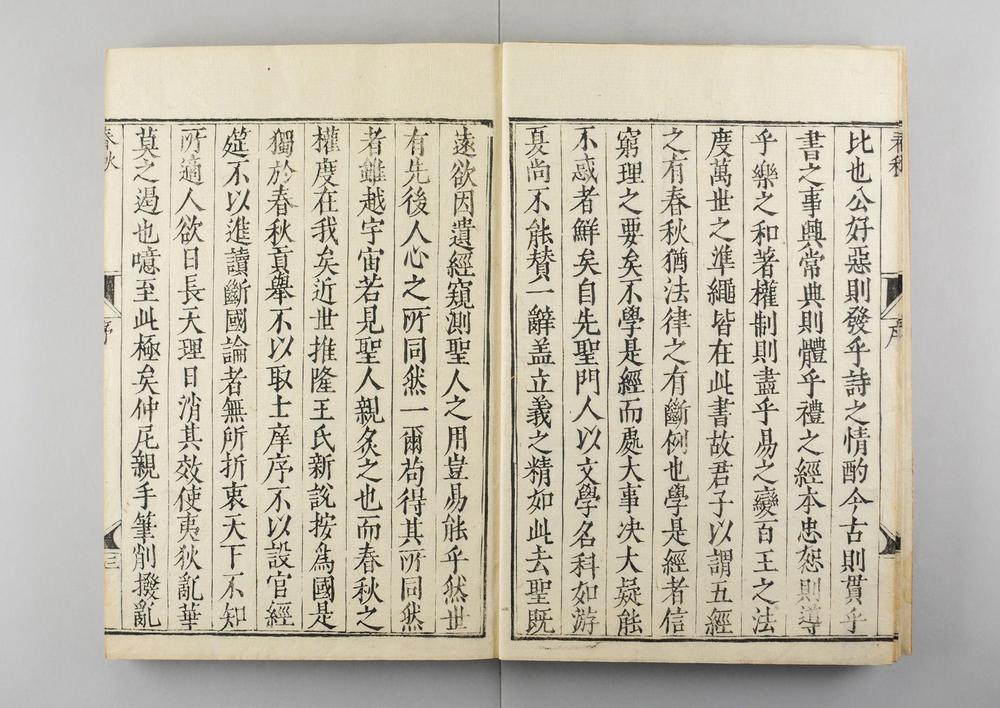 春秋
序
比也公好惡則發乎詩之情酌今古則貫乎
書之事興常典則體乎禮之經本忠恕則導
乎樂之和著權制則盡乎易之變百王之法
度萬世之準繩皆在此書故君子以謂五經
之有春秋猶法律之有斷例也學是經者信
窮理之要矣不學是經而處大事决大疑能
不惑者鮮矣自先聖門人以文學名科如游
夏尚不能賛一辭盖立義之精如此去聖既
遠欲因遺經窺測聖人之用豈易能乎然世
有先後人心之所同然一爾茍得其所同然
者雖越宇宙若見聖人親炙之也而春秋之
權度在我矣近世推隆王氏新說按為國是
獨於春秋貢舉不以取士庠序不以設官經
筵不以進讀斷國論者無所折衷天下不知
所適人欲日長天理日消其效使夷狄亂華
莫之遏也噫至此極矣仲尼親手筆削撥亂
春秋
序
三